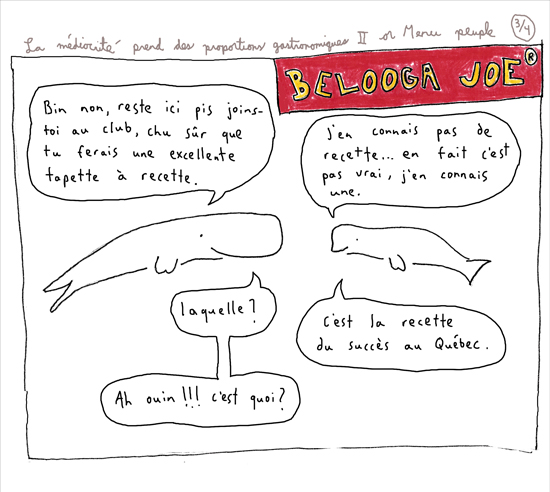 La médiocrité prend des proportions gastronomiques II or Menu peuple 3/4
BELOOGA JOE®
Bin non, reste ici pis joins-
toi au club, chu sûr que
tu ferais une excellente
tapette à recette.
J'en connais pas de
recette... en fait c'est
pas vrai, j'en connais
une.
laquelle?
Ah ouin!!! c'est quoi?
c'est la recette
du succès au Québec.